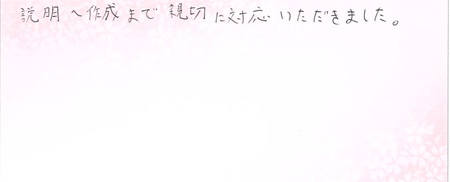 説明〜作成まで親切に対応いただきました。